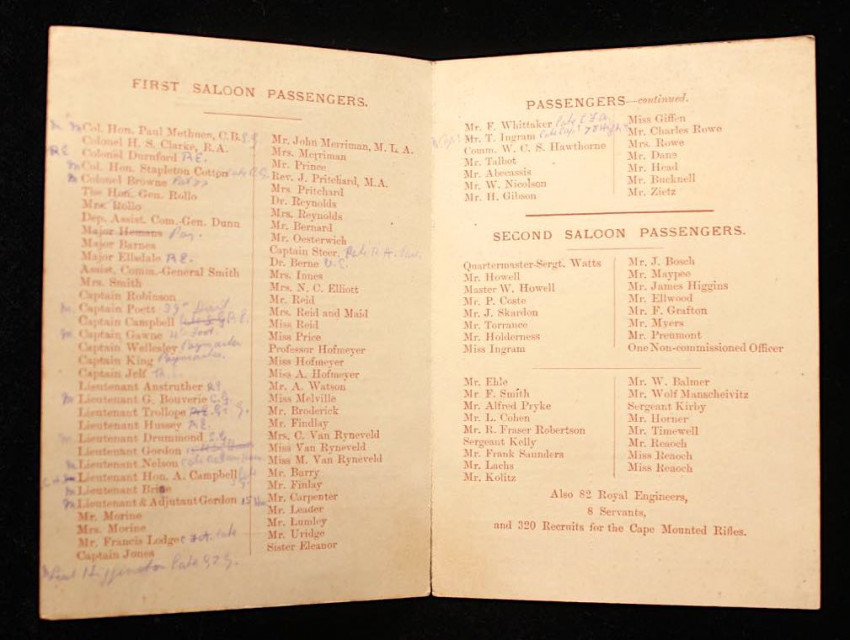 FIRST SALOON PASSENGERS.
Col. Hon. Paul Methuen, C.B.
Colonel H. S. Clarke, R.A.
Colonel Durnford R.E.
Col. Hon. Stapleton Cotton
Colonel Browne
The Hon. Gen. Rollo
Mrs. Rollo
Dep. Assist. Com.-Gen. Dunn
Major Hemans Pay.
Major Barnes
Major Ellsdale R.E.
Assist. Comm.-General Smith
Mrs. Smith
Captain Robinson
Captain Poett
Captain Campbell
Captain Gawne
Captain Wellesley Paymaster
Captain King Paymaster
Captain Jelf
Lieutenant Anstruther
Lieutenant G. Bouverie
Lieutenant Trollope
Lieutenant Hussey R.E.
Lieutenant Drummond
Lieutenant Gordon
Lieutenant Nelson
Lieutenant Hon. A. Campbell
Lieutenant Brine
Lieutenant & Adjutant Gordon
Mr. Morine
Mrs. Morine
Mr. Francis Lodge
Captain Jones
Mr. John Merriman, M. L. A.
Mrs. Merriman
Mr. Prince
Rev. J. Pritchard, M.A.
Mrs Pritchard
Dr. Reynolds
Mrs. Reynolds
Mr. Bernard
Mr. Oesterwich
Captain Steer
Dr. Berne
Mrs. Innes
Mrs. N. C. Elliott
Mr. Reid
Mrs. Reid and Maid
Miss Reid
Miss Price
Professor Hofmeyer
Miss Hofmeyer
Miss A. Hofmeyer
Mr. A. Watson
Miss Melville
Mr. Broderick
Mr. Findlay
Mrs. C. Van Ryneveld
Miss Van Ryneveld
Miss M. Van Ryneveld
Mr. Barry
Mr. Finlay
Mr. Carpenter
Mr. Leader
Mr. Lumley
Mr. Uridge
Sister Eleanor
PASSENGERS—continued.
Mr. F. Whittaker
Mr. T. Ingram
Comm. W. C. S. Hawthorne
Mr. Talbot
Mr. Abecassis
Mr. W. Nicolson
Mr. H. Gibson
Miss Giffen
Mr. Charles Rowe
Mrs. Rowe
Mr. Dans
Mr. Head
Mr. Bucknell
Mr. Zietz
SECOND SALOON PASSENGERS.
Quartermaster-Sergt. Watts
Mr. Howell
Master W. Howell
Mr. P. Coste
Mr. J. Skardon
Mr. Torrance
Mr. Holderness
Miss Ingram
Mr. J. Bosch
Mr. Maypee
Mr. James Higgins
Mr. Ellwood
Mr. F. Grafton
Mr. Myers
Mr. Preumont
One Non-commissioned Officer
Mr. Ehle
Mr F. Smith
Mr. Alfred Pryke
Mr. L. Cohen
Mr. R. Fraser Robertson
Sergeant Kelly
Mr. Frank Saunders
Mr. Lachs
Mr. Kolitz
Mr. W. Balmer
Mr. Wolf Manscheivitz
Sergeant Kirby
Mr. Horner
Mr. Timewell
Mr. Reaoch
Miss Reaoch
Miss Reaoch
Also 82 Royal Engineers,
8 Servants,
and 320 Recruits for the Cape Mounted Rifles.